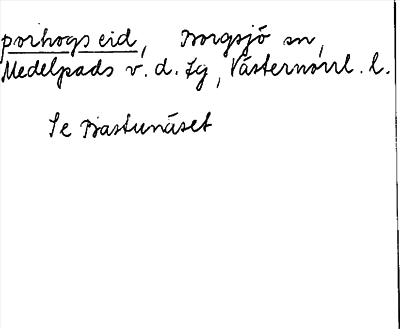 porhogs eid, Borgsjö sn,
Medelpads v. d. Lg, Västernorrl. l.
Se Bastunäset